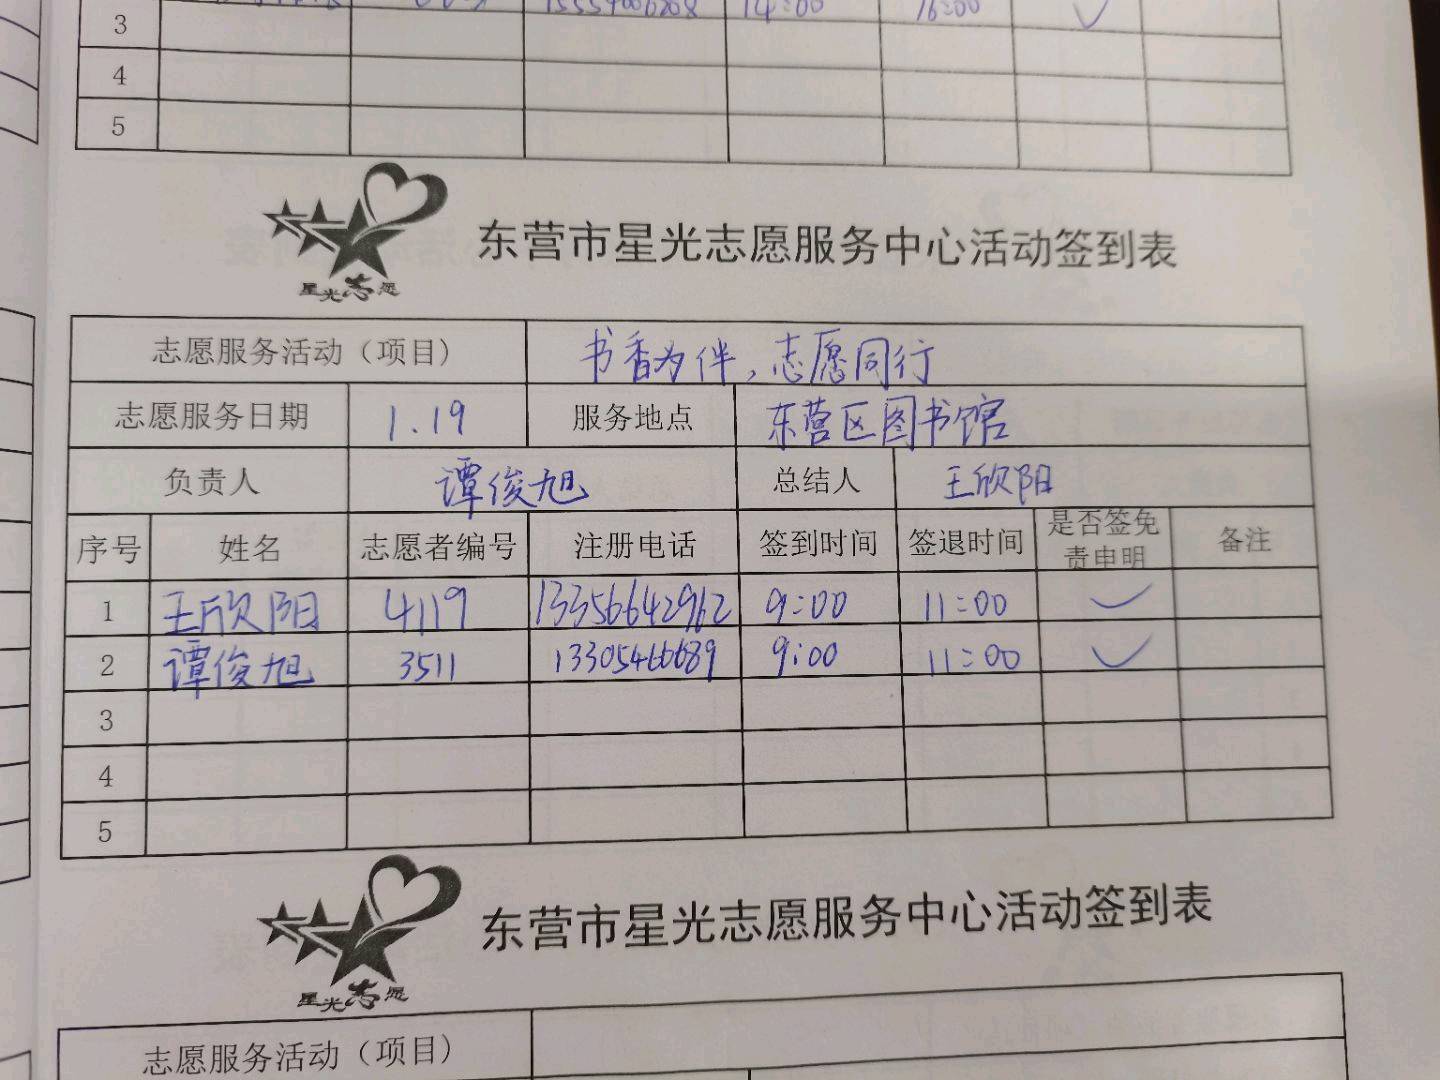 3 14:00 16:00 ✓
4
5
星光志愿
东营市星光志愿服务中心活动签到表
志愿服务活动（项目) 书香为伴，志愿同行
志愿服务日期 1.19 服务地点 东营区图书馆
负责人 谭俊旭 总结人 王欣阳
序号 姓名 志愿者编号 注册电话 签到时间 签退时间 是否签免责申明 备注
1 王欣阳 4119 13356642962 9:00 11:00 ✓
2 谭俊旭 3511 13305466689 9:00 11:00 ✓
3
4
5
星光志愿
东营市星光志愿服务中心活动签到表
志愿服务活动（项目)